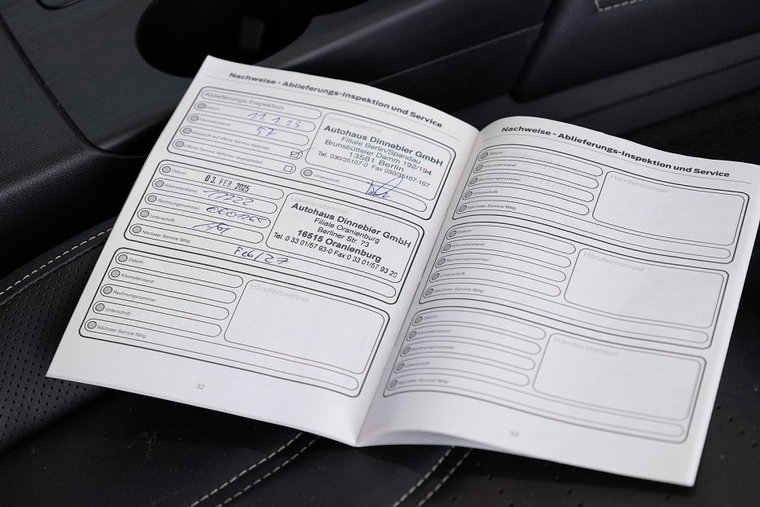 Nachweise - Ablieferungs-Inspektion und Service
Ablieferungs-Inspektion
Datum
11.1.23
Kilometerstand
57
Überprüft auf offene Service Aktionen
offene Service Aktionen abgearbeitet
Autohaus Dinnebier GmbH
Filiale Berlin/Spandau
Brunsbütteler Damm 192/194
13581 Berlin
Tel. 030/35107-0 Fax 030/35107-107
Unterschrift
Datum
03. FEB 2025
Kilometerstand
Rechnungsnummer
Unterschrift
Nächster Service fällig
Feb/27
Händlerstempel
Autohaus Dinnebier GmbH
Filiale Oranienburg
Berliner Str. 73
16515 Oranienburg
Tel. 0 33 01/57 93-0 Fax 0 33 01/57 93 20
Datum
Kilometerstand
Rechnungsnummer
Unterschrift
Nächster Service fällig
Händlerstempel
32
Nachweise - Ablieferungs-Inspektion und Service
Datum
Kilometerstand
Rechnungsnummer
Unterschrift
Nächster Service fällig
Händlerstempel
Datum
Kilometerstand
Rechnungsnummer
Unterschrift
Nächster Service fällig
Händlerstempel
Datum
Kilometerstand
Rechnungsnummer
Unterschrift
Nächster Service fällig
Händlerstempel